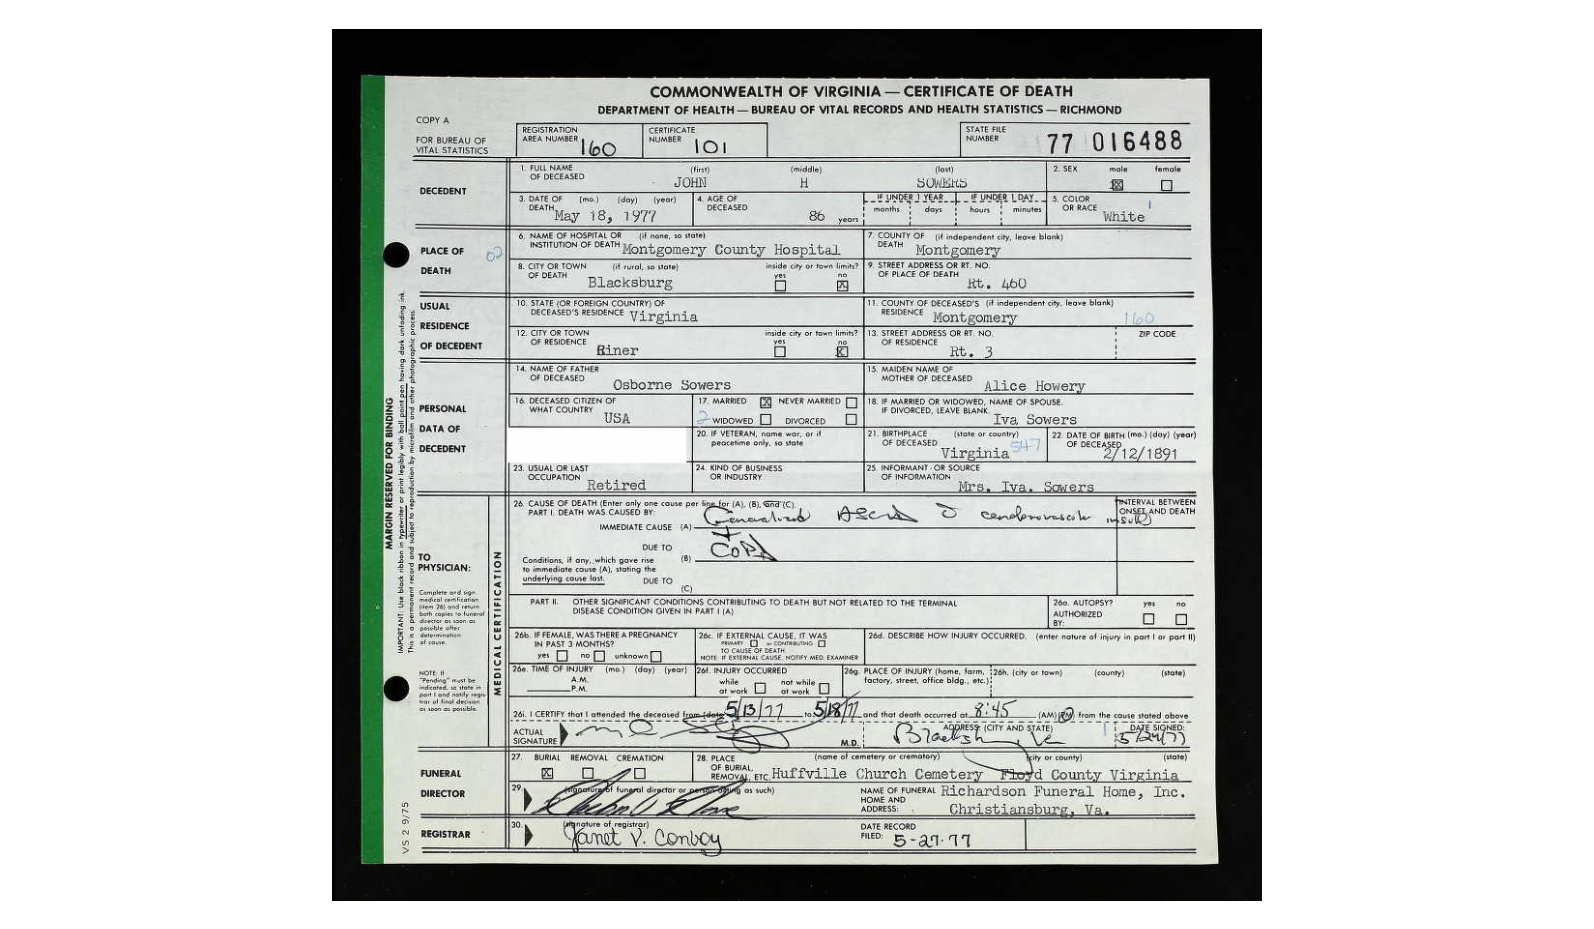 COMMONWEALTH OF VIRGINIA — CERTIFICATE OF DEATH
DEPARTMENT OF HEALTH — BUREAU OF VITAL RECORDS AND HEALTH STATISTICS — RICHMOND
COPY A
FOR BUREAU OF VITAL STATISTICS
REGISTRATION AREA NUMBER 160
CERTIFICATE NUMBER 101
STATE FILE NUMBER 77 016488
DECEDENT
1. FULL NAME OF DECEASED (first) (middle) (last)
JOHN H SOWERS
2. SEX male ☒ female ☐
3. DATE OF DEATH (mo.) (day) (year) May 18, 1977
4. AGE OF DECEASED 86 years
IF UNDER 1 YEAR months days
IF UNDER 1 DAY hours minutes
5. COLOR OR RACE White 1
PLACE OF DEATH 02
6. NAME OF HOSPITAL OR (if none, so state) INSTITUTION OF DEATH Montgomery County Hospital
7. COUNTY OF (if independent city, leave blank) DEATH Montgomery
8. CITY OR TOWN (if rural, so state) OF DEATH Blacksburg
inside city or town limits? yes ☐ no ☒
9. STREET ADDRESS OR RT. NO. OF PLACE OF DEATH Rt. 460
USUAL RESIDENCE OF DECEDENT
10. STATE (OR FOREIGN COUNTRY) OF DECEASED'S RESIDENCE Virginia
11. COUNTY OF DECEASED'S (if independent city, leave blank) RESIDENCE Montgomery 160
12. CITY OR TOWN OF RESIDENCE Riner
inside city or town limits? yes ☐ no ☒
13. STREET ADDRESS OR RT. NO. OF RESIDENCE Rt. 3
ZIP CODE
PERSONAL DATA OF DECEDENT
14. NAME OF FATHER OF DECEASED Osborne Sowers
15. MAIDEN NAME OF MOTHER OF DECEASED Alice Howery
16. DECEASED CITIZEN OF WHAT COUNTRY USA
17. MARRIED ☒ NEVER MARRIED ☐
2 WIDOWED ☐ DIVORCED ☐
18. IF MARRIED OR WIDOWED, NAME OF SPOUSE. IF DIVORCED, LEAVE BLANK. Iva Sowers
20. IF VETERAN, name war, or if peacetime only, so state
21. BIRTHPLACE (state or country) OF DECEASED Virginia 547
22. DATE OF BIRTH (mo.) (day) (year) OF DECEASED 2/12/1891
23. USUAL OR LAST OCCUPATION Retired
24. KIND OF BUSINESS OR INDUSTRY
25. INFORMANT - OR SOURCE OF INFORMATION Mrs. Iva. Sowers
MARGIN RESERVED FOR BINDING
IMPORTANT: Use black ribbon in typewriter or print legibly with ball point pen having dark unfading ink.
This is a permanent record and subject to reproduction by microfilm and other photographic process.
TO PHYSICIAN:
Complete and sign medical certification (item 26) and return both copies to funeral director as soon as possible after determination of cause.
NOTE: If "Pending" must be indicated, so state in part I and notify registrar of final decision as soon as possible.
MEDICAL CERTIFICATION
26. CAUSE OF DEATH (Enter only one cause per line for (A), (B), and (C).
PART I. DEATH WAS CAUSED BY:
IMMEDIATE CAUSE (A) Generalized ASCVD cerebrovascular insuff
INTERVAL BETWEEN ONSET AND DEATH
DUE TO
Conditions, if any, which gave rise to immediate cause (A), stating the underlying cause last.
(B) COPD
DUE TO (C)
PART II. OTHER SIGNIFICANT CONDITIONS CONTRIBUTING TO DEATH BUT NOT RELATED TO THE TERMINAL DISEASE CONDITION GIVEN IN PART I (A)
26a. AUTOPSY? yes no
AUTHORIZED BY: ☐ ☐
26b. IF FEMALE, WAS THERE A PREGNANCY IN PAST 3 MONTHS? yes ☐ no ☐ unknown ☐
26c. IF EXTERNAL CAUSE, IT WAS PRIMARY ☐ or CONTRIBUTING ☐ TO CAUSE OF DEATH
NOTE: IF EXTERNAL CAUSE, NOTIFY MED. EXAMINER
26d. DESCRIBE HOW INJURY OCCURRED. (enter nature of injury in part I or part II)
26e. TIME OF INJURY (mo.) (day) (year) A.M. P.M.
26f. INJURY OCCURRED while at work ☐ not while at work ☐
26g. PLACE OF INJURY (home, farm, factory, street, office bldg., etc.)
26h. (city or town) (county) (state)
26i. I CERTIFY that I attended the deceased from (date) 5/13/77 to 5/18/77 and that death occurred at 8:45 (AM) (PM) from the cause stated above
ACTUAL SIGNATURE M.D.
ADDRESS (CITY AND STATE) Blacksburg Va
DATE SIGNED: 5/24/77
FUNERAL DIRECTOR
27. BURIAL ☒ REMOVAL ☐ CREMATION ☐
28. PLACE OF BURIAL, REMOVAL, ETC. (name of cemetery or crematory) (city or county) (state)
Huffville Church Cemetery Floyd County Virginia
29. (signature of funeral director or person acting as such)
NAME OF FUNERAL HOME AND ADDRESS: Richardson Funeral Home, Inc.
Christiansburg, Va.
REGISTRAR
30. (signature of registrar) Janet V. Conboy
DATE RECORD FILED: 5-27-77
VS 2 9/75